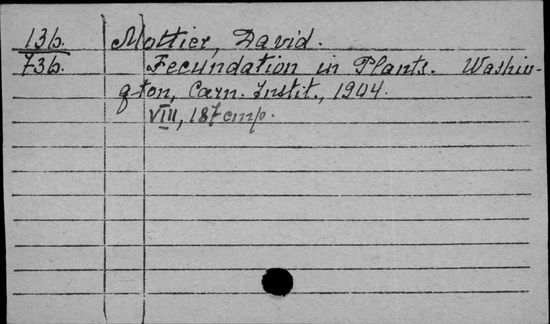 13б. Mottier, David.
73б. Fecundation in Plants. Washin-
gton, Carn. Instit., 1904.
VIII, 187 стр.